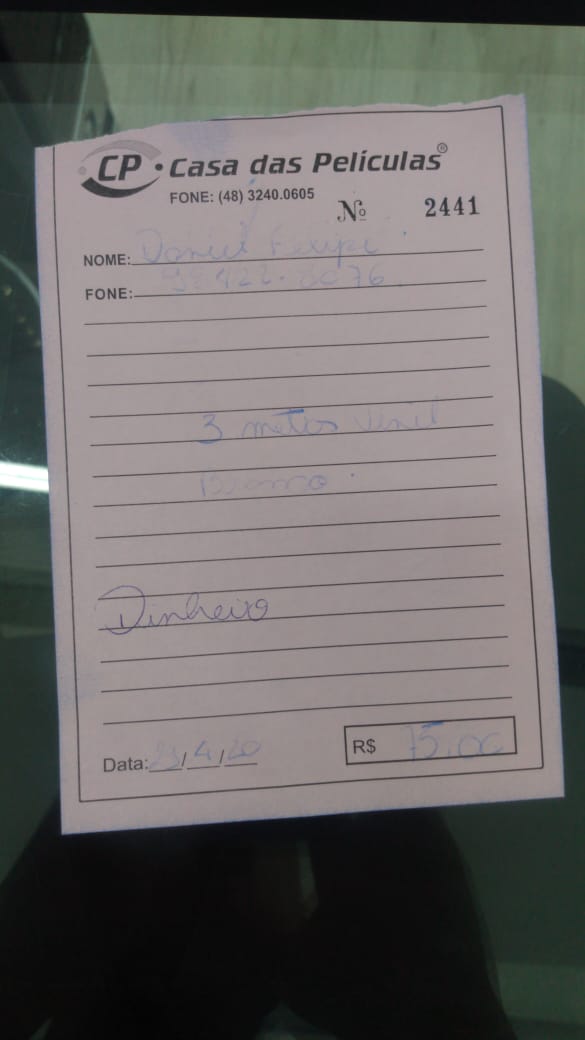 CP • Casa das Películas®
FONE: (48) 3240.0605
Nº 2441
NOME: Daniel Felipi
FONE: 422.8076
3 metros Vinil
Branco.
Dinheiro
Data: /4/20
R$ 75,00